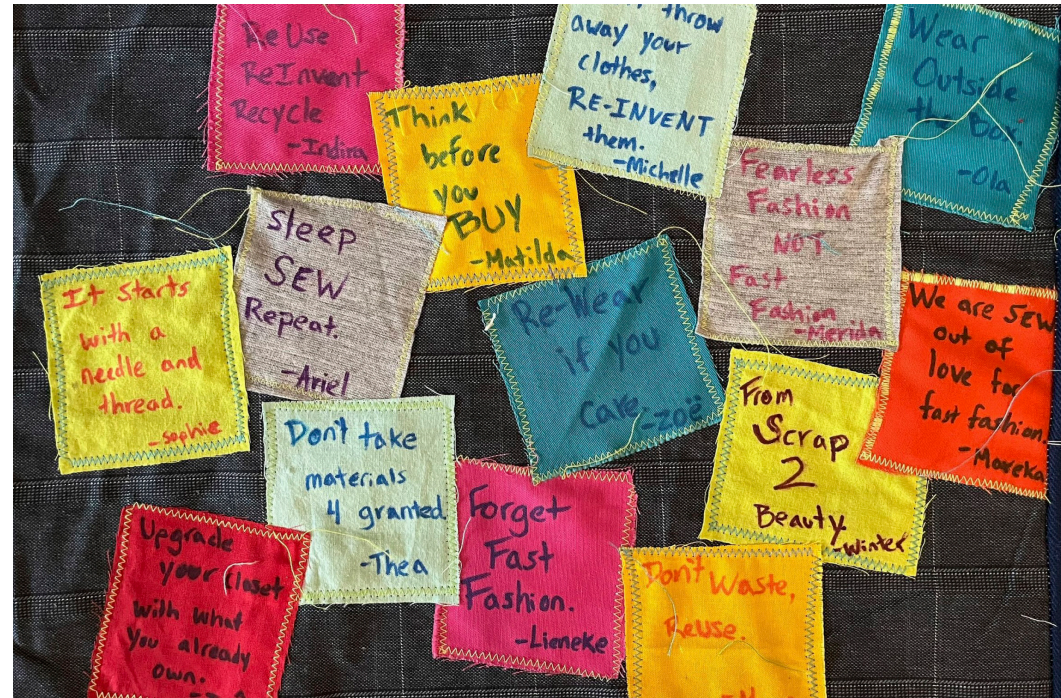 ReUse
ReInvent
Recycle
-Indira
Think
before
you
BUY
-Matilda
throw
away your
clothes,
RE-INVENT
them.
-Michelle
Wear
Outside
the Box.
-Ola
Sleep
SEW
Repeat.
-Ariel
Fearless
Fashion
NOT
Fast
Fashion
-Merida
It starts
with a
needle and
thread.
-Sophie
Re-Wear
if you
care.-zoë
We are SEW
out of
love for
fast fashion.
-Mareka
Don't take
materials
4 granted
-Thea
From
Scrap
2
Beauty.
-Winter
Forget
Fast
Fashion.
-Lieneke
Upgrade
your closet
with what
you already
own.
Don't Waste,
Reuse.